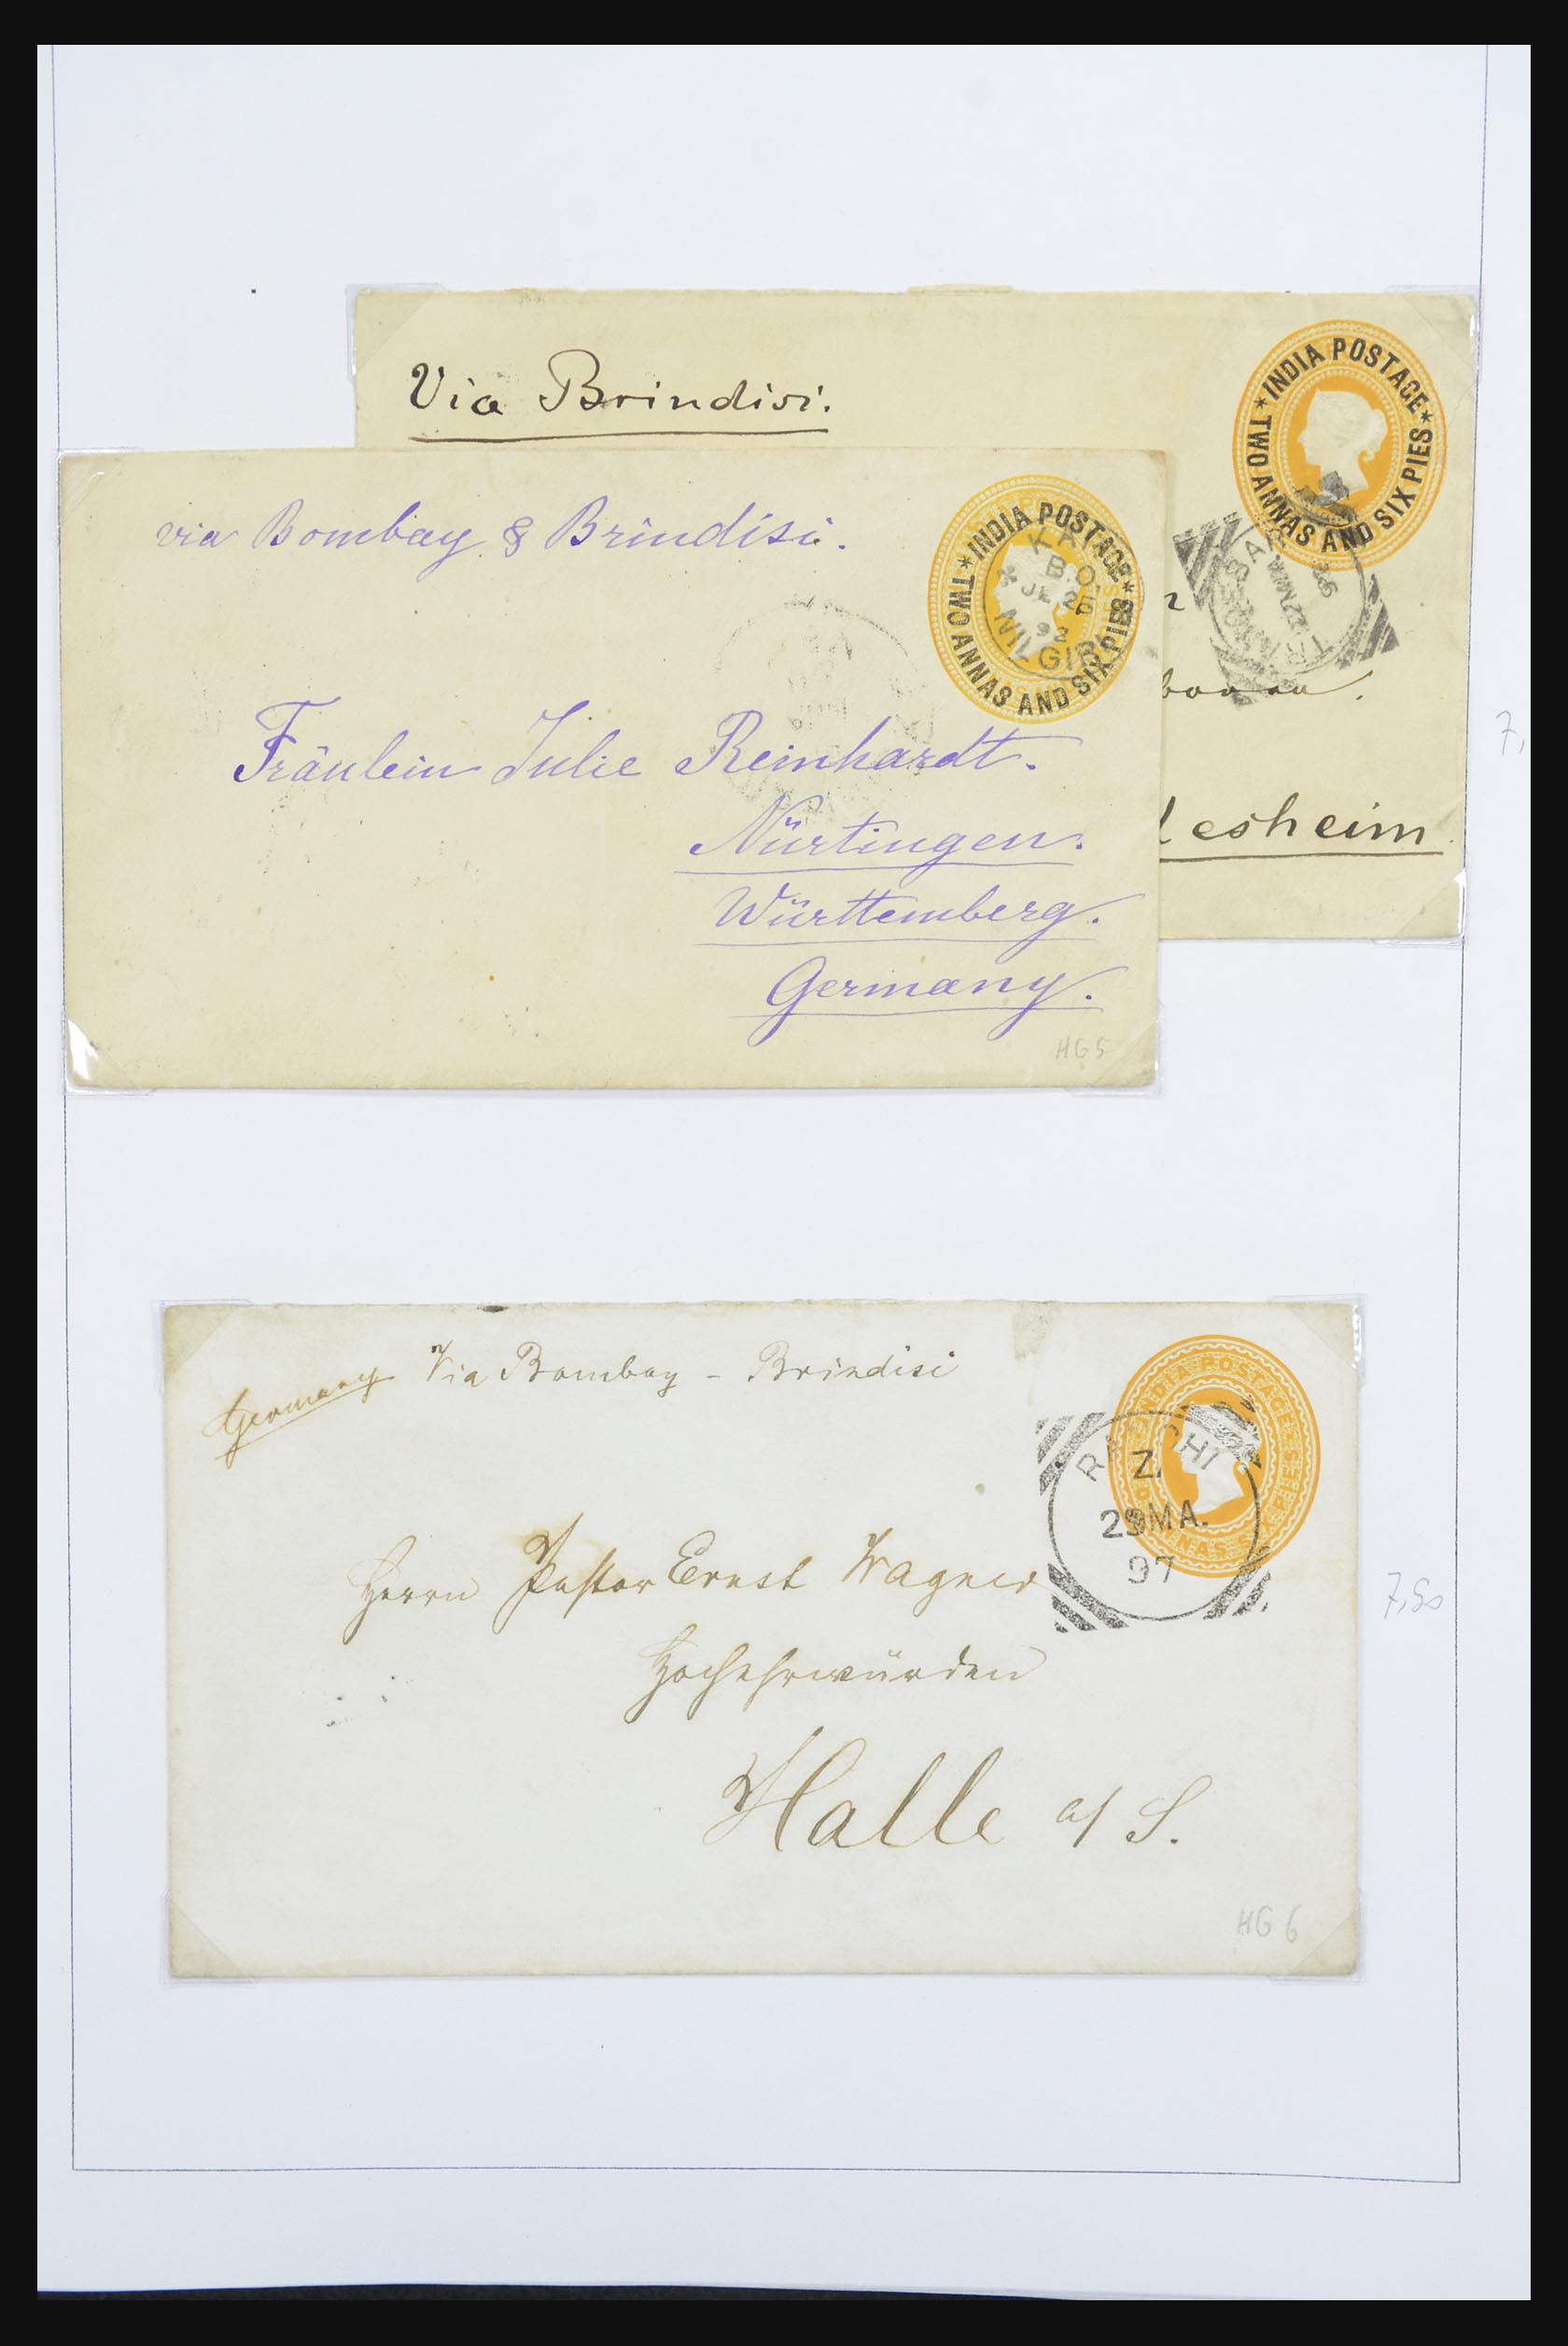 Via Brindisi.
INDIA POSTAGE
TWO ANNAS AND SIX PIES
lesheim
7,
via Bombay & Brindisi.
INDIA POSTAGE
TWO ANNAS AND SIX PIES
B.O.
JE 2
92
NILGIRI
Fräulein Julie Reinhardt.
Nürtingen.
Württemberg.
Germany.
HG 5
Germany Via Bombay - Brindisi
INDIA POSTAGE
Z.
29 MA.
97
Herrn Pastor Ernst Wagner
Hochehrwürden
Halle a/S.
7,50
HG 6